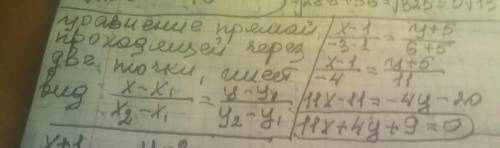 √325 = 5√13
уравнение прямой,
проходящей через
две точки, имеет
вид (x-x₁)/(x₂-x₁) = (y-y₁)/(y₂-y₁)
(x-1)/(-3-1) = (y+5)/(6+5)
(x-1)/(-4) = (y+5)/11
11x-11=-4y-20
11x+4y+9=0
x+1